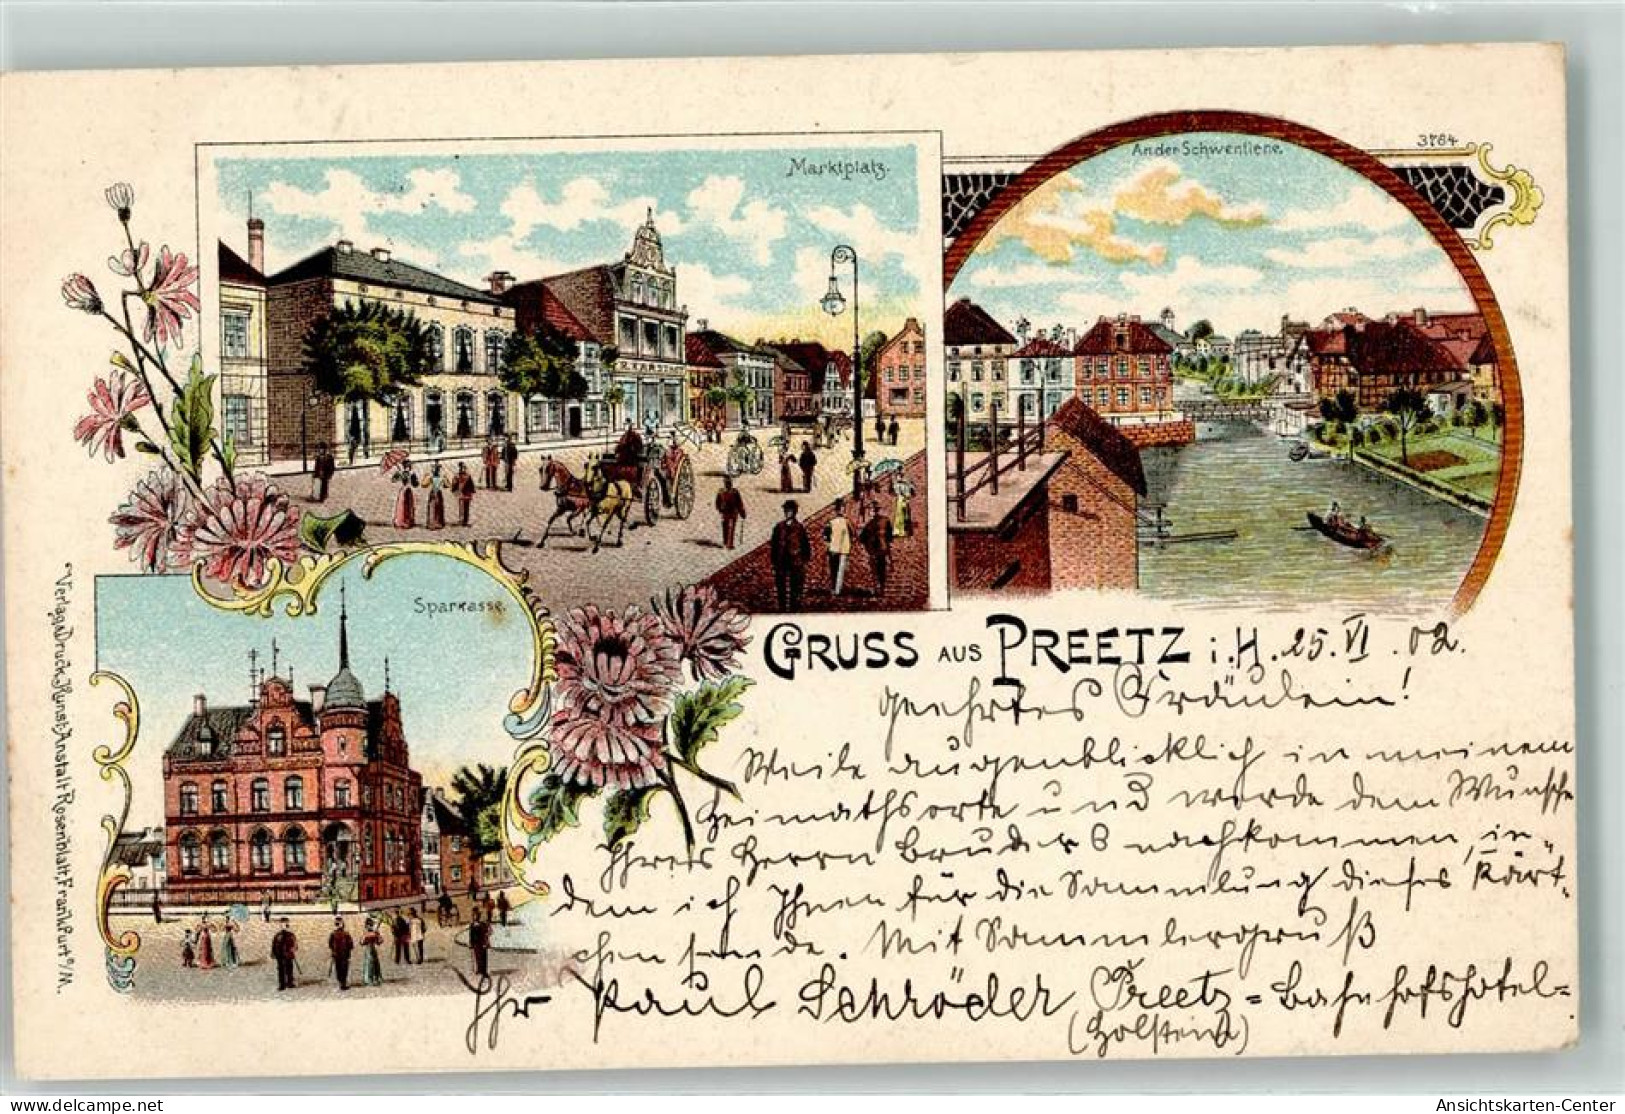 Marktplatz.
An der Schwentiene.
3764
Sparkasse.
Verlag & Druck, Kunst-Anstalt Rosenblatt, Frankfurt a/M.
GRUSS AUS PREETZ i. H. 25. VI. 02.
geehrtes Fräulein!
Weile augenblicklich in meinem
Heimathsorte und werde dem Wunsche
Ihres Herrn Bruders nachkommen, in-
dem ich Ihnen für die Sammlung dieses Kärt-
chen sende. Mit Sammlergruß
Ihr Paul Schröder, Preetz = Bahnhofshotel =
(Holstein)
Ansichtskarten-Center